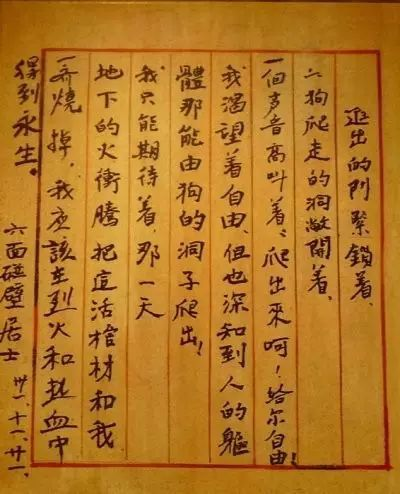 出的门緊鎖着、
为狗爬走的洞敞開着、
一個声音高叫着、爬出來呵！給尔自由！
我渴望着自由、但也深知到人的軀
體那能由狗的洞子爬出！
我只能期待着、那一天
地下的火衝騰把這活棺材和我
一齊燒掉，我应該在烈火和热血中
得到永生。
六面碰壁居士 卅一、十一、廿一、